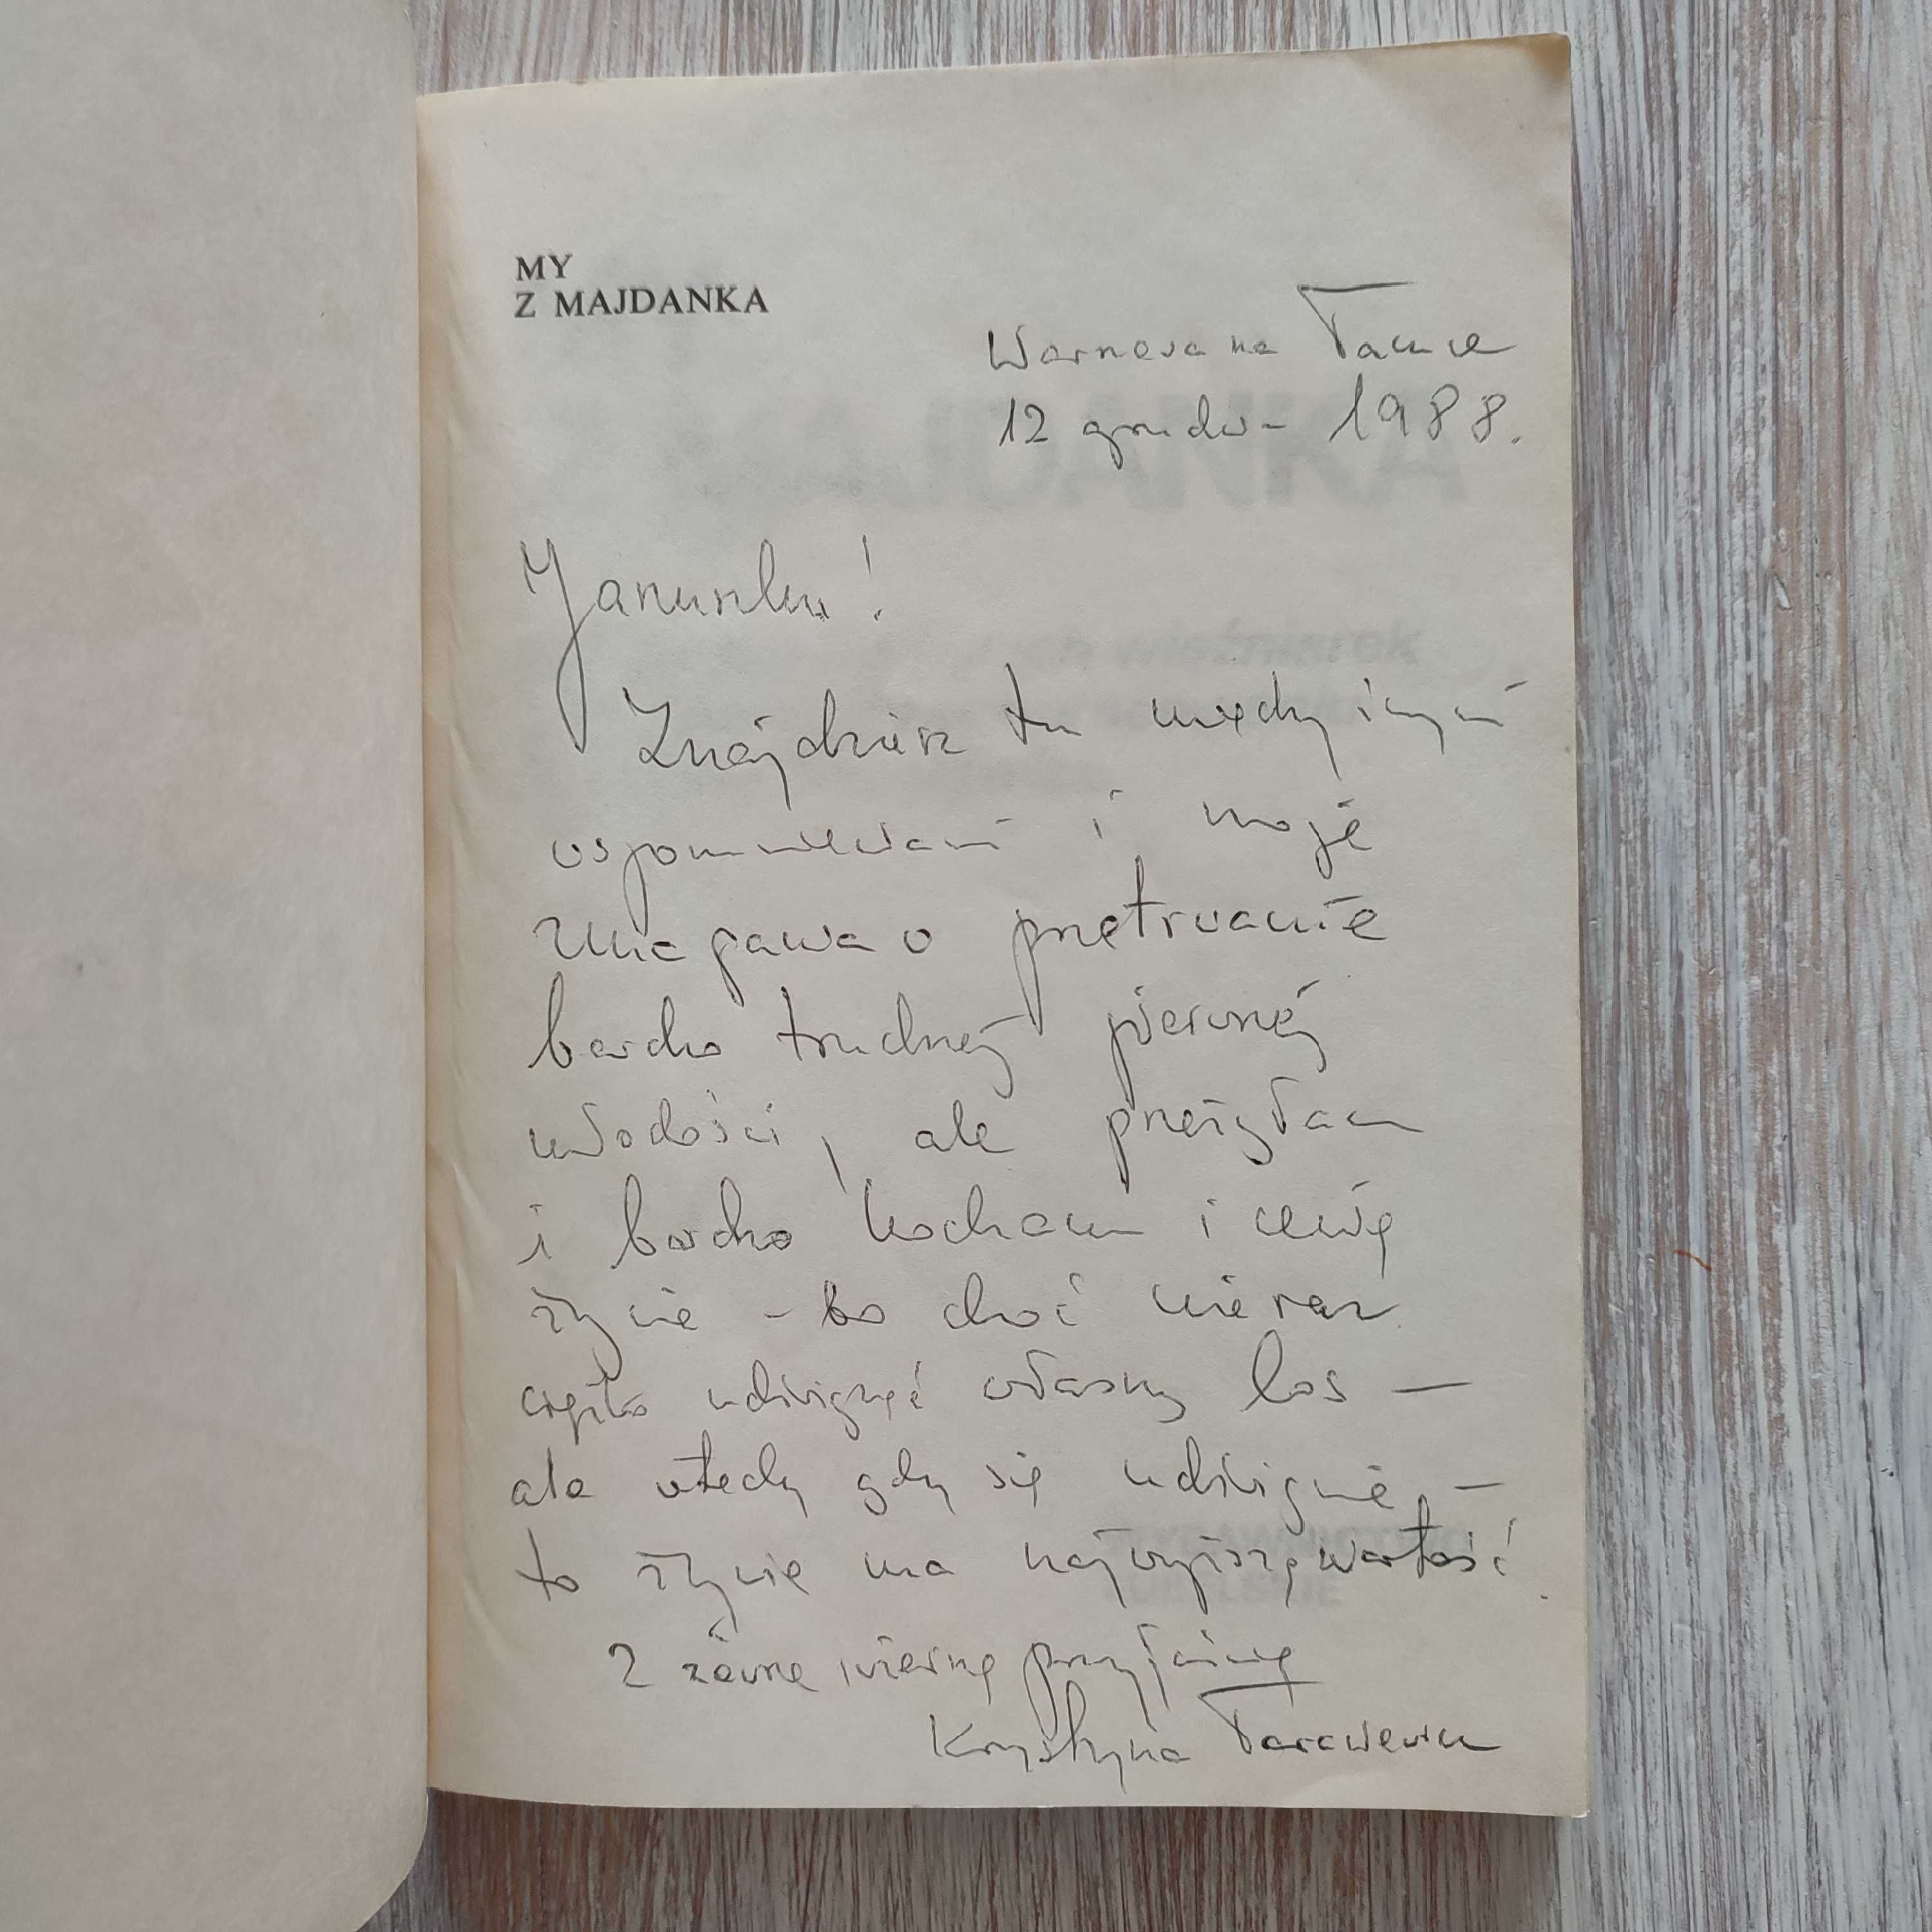 MY
Z MAJDANKA
Warszawa na Tamce
12 grudnia 1988.
Januszku!
Znajdziesz tu między innymi
wspomnieniami i moje
zmagania o przetrwanie
bardzo trudnej pierwszej
młodości, ale przeżyłam
i bardzo kocham i cenię
życie - bo choć nieraz
ciężko udźwignąć własny los —
ale wtedy gdy się udźwignie, —
to życie ma najwyższą wartość.
Z zawsze wierną przyjaźnią
Krystyna Tarasiewicz